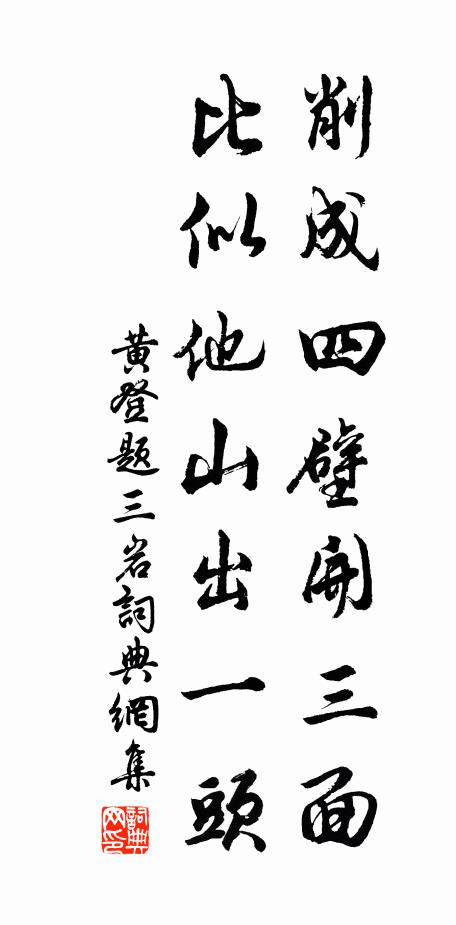 削成四壁開三面
比似他山出一頭
黄登題三岩詞典網集
詞典网印